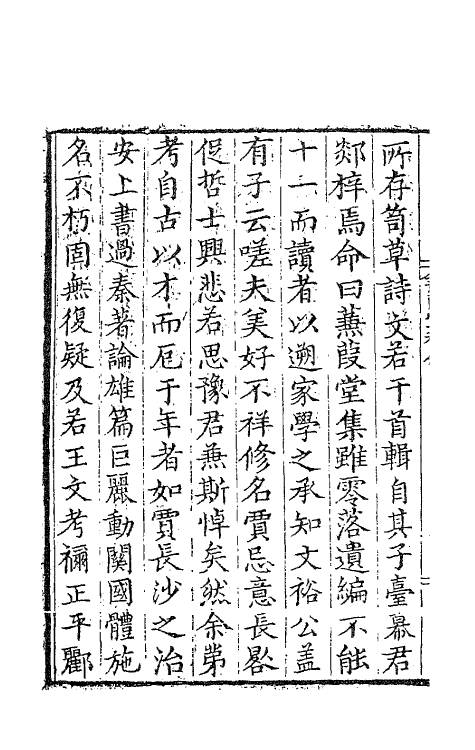 所存笥草詩文若干首輯自其子臺幕君
郯梓焉命曰蒹葭堂集雖零落遺編不能
十一而讀者以遡家學之承知文裕公蓋
有子云嗟夫美好不祥修名賈忌意長晷
促哲士興悲若思豫君兼斯悼矣然余第
考自古以才而厄于年者如賈長沙之治
安上書過秦著論雄篇巨麗動關國體施
名不朽固無復疑及若王文考禰正平酈